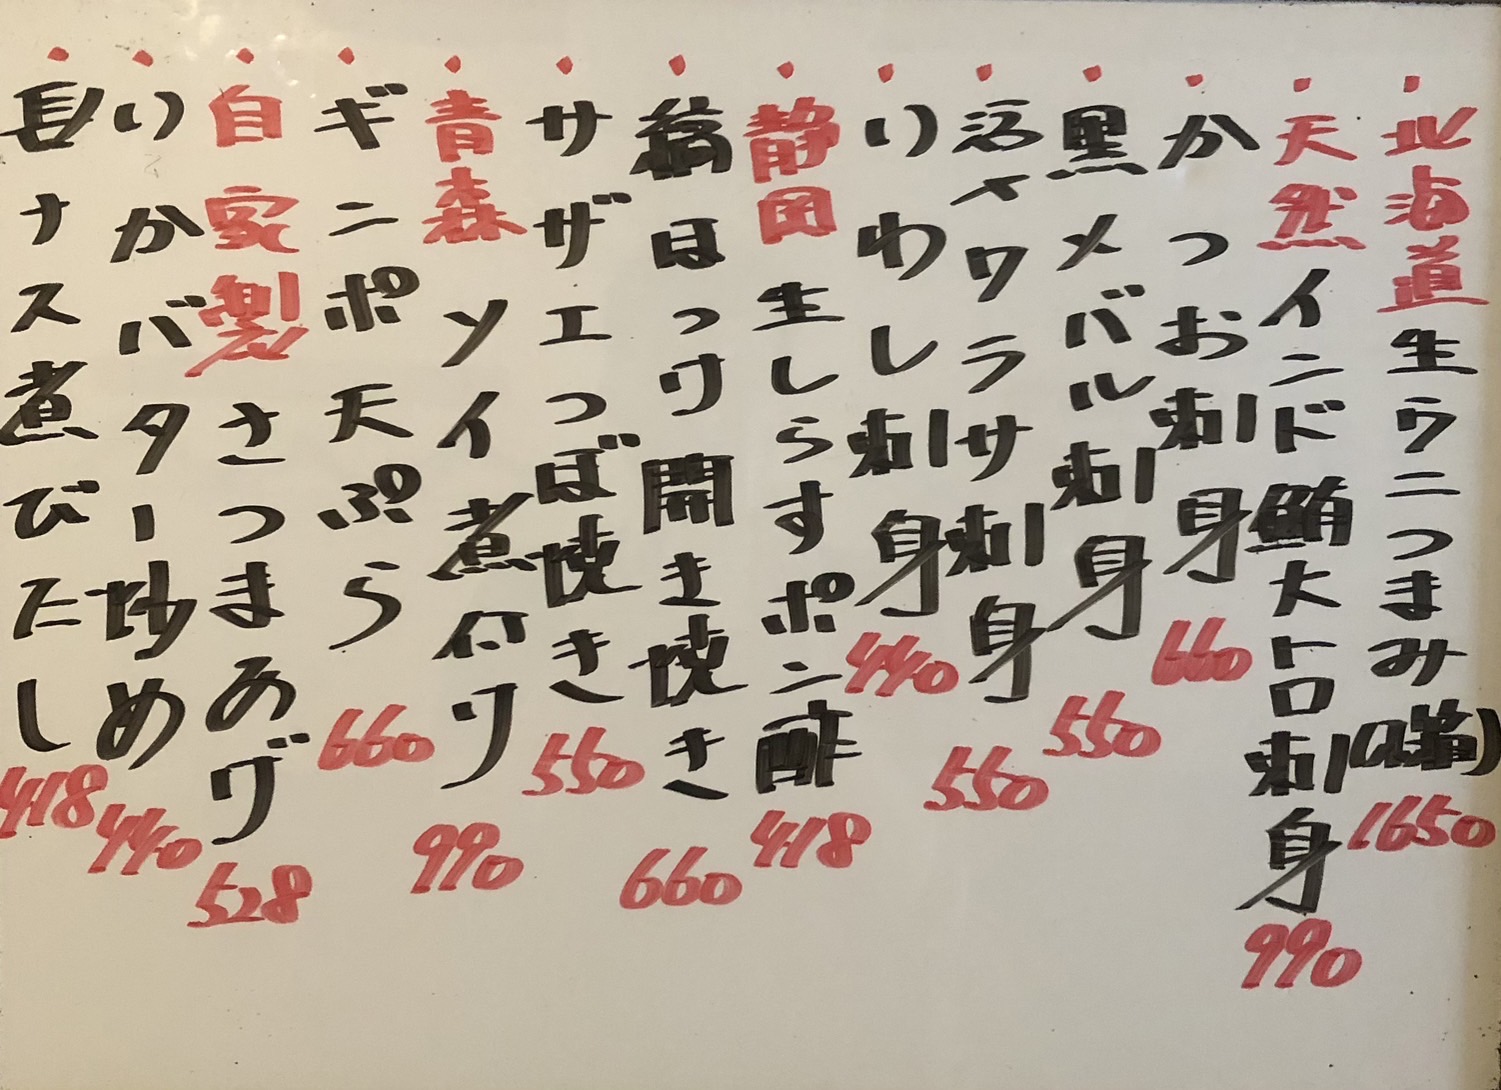 ・北海道生ウニつまみ 1650
・天然インド鮪大トロ刺身 990
・かつお刺身 660
・黒メバル刺身 550
・活〆ワラサ刺身 550
・いわし刺身 440
・静岡生しらすポン酢 418
・縞ほっけ開き焼き 660
・サザエつぼ焼き 550
・青森ソイ煮付け 990
・ギンポ天ぷら 660
・自家製さつまあげ 528
・いかバター炒め 440
・長ナス煮びたし 418